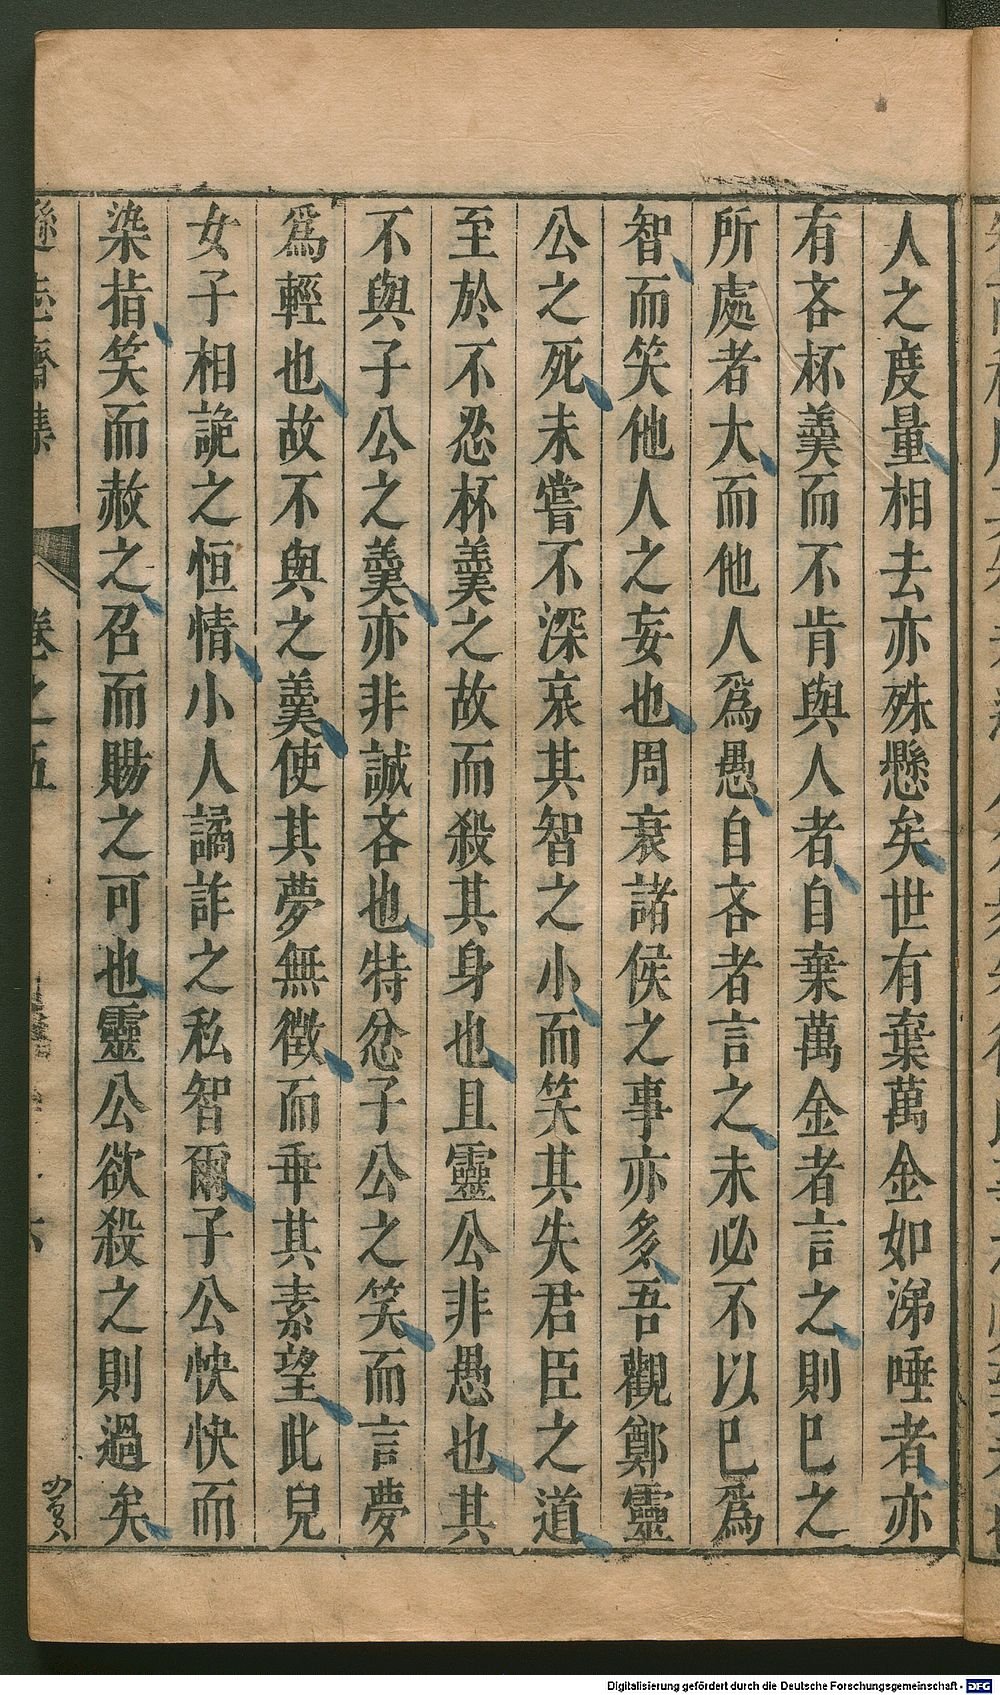 人之度量相去亦殊懸矣世有棄萬金如涕唾者亦
有吝杯羹而不肯與人者自棄萬金者言之則已之
所處者大而他人爲愚自吝者言之未必不以已爲
智而笑他人之妄也周衰諸侯之事亦多吾觀鄭靈
公之死未嘗不深哀其智之小而笑其失君臣之道
至於不忍杯羹之故而殺其身也且靈公非愚也其
不與子公之羹亦非誠吝也特忿子公之笑而言夢
爲輕也故不與之羹使其夢無徵而乖其素望此兒
女子相詭之恒情小人譎詐之私智爾子公怏怏而
染指笑而赦之召而賜之可也靈公欲殺之則過矣
遜志齋集 卷之五
Digitalisierung gefördert durch die Deutsche Forschungsgemeinschaft - DFG